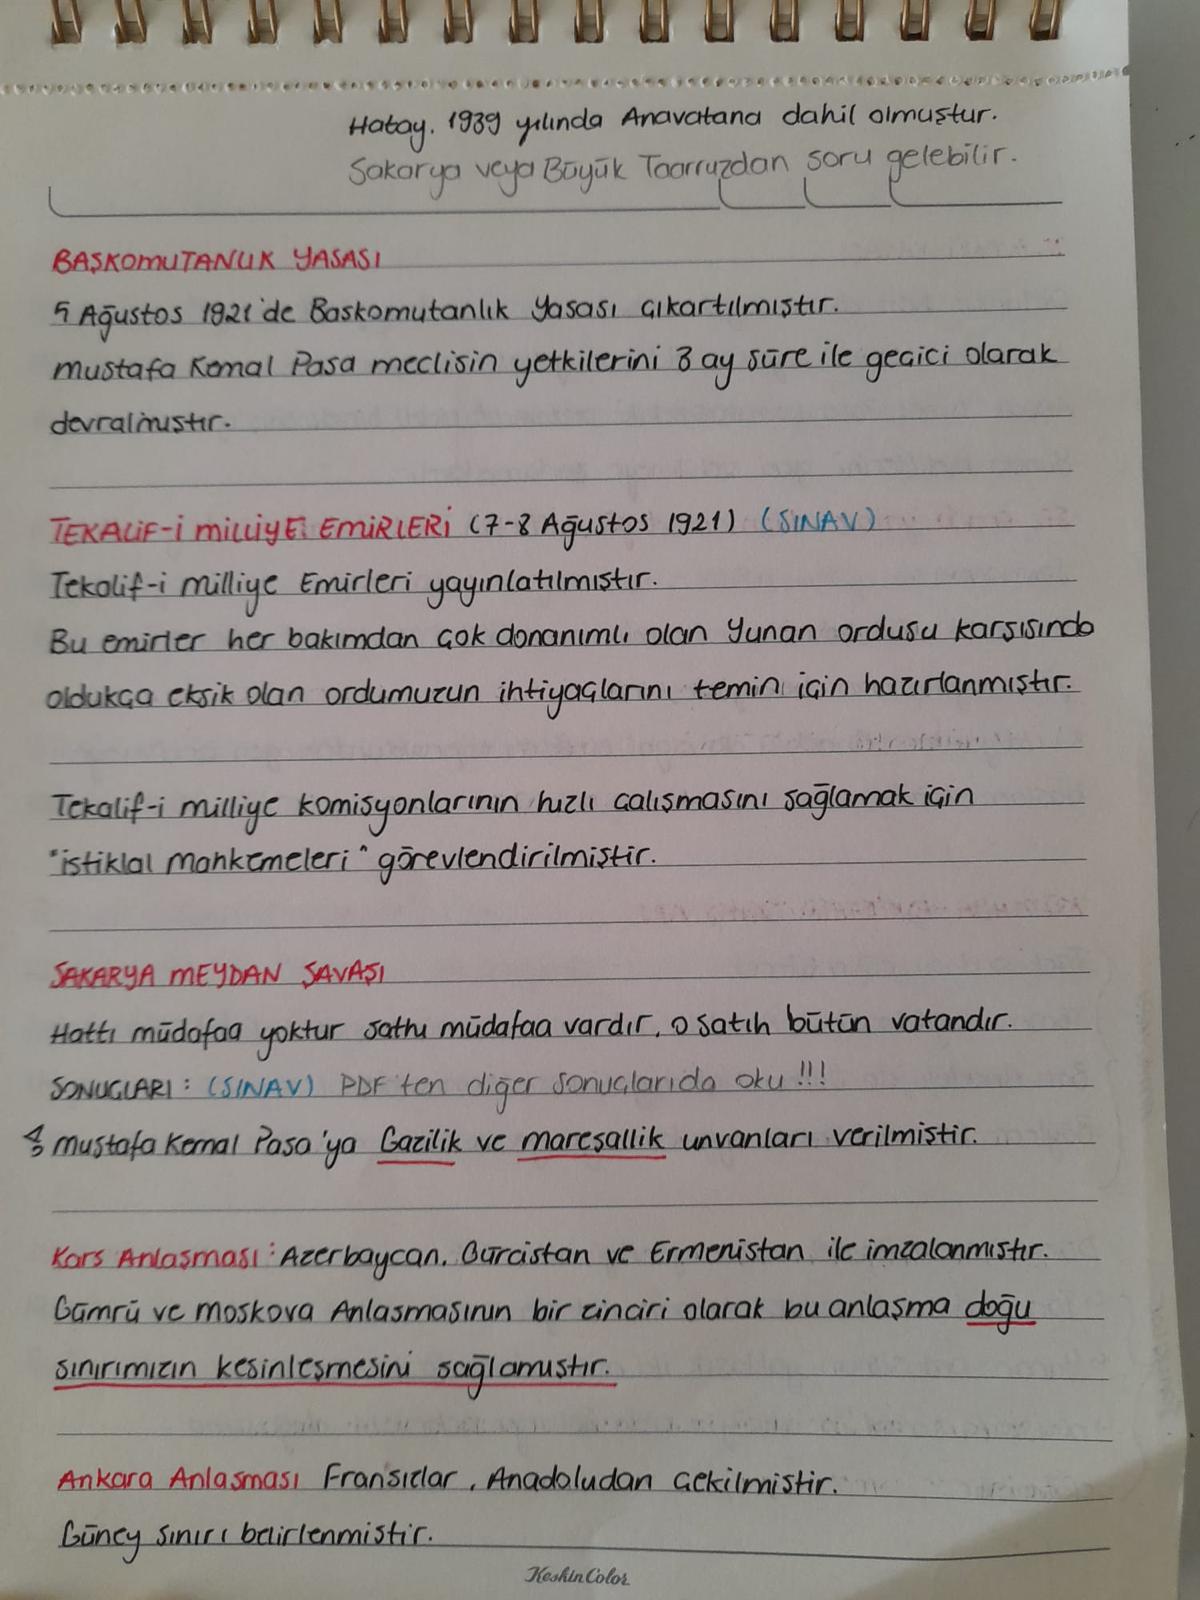 Hatay, 1939 yılında Anavatana dahil olmuştur.
Sakarya veya Büyük Taarruzdan soru gelebilir.
BAŞKOMUTANLIK YASASI
5 Ağustos 1921'de Başkomutanlık Yasası çıkartılmıştır.
Mustafa Kemal Paşa meclisin yetkilerini 3 ay süre ile geçici olarak
devralmıştır.
TEKALİF-İ MİLLİYE EMİRLERİ (7-8 Ağustos 1921) (SINAV)
Tekalif-i milliye Emirleri yayınlatılmıştır.
Bu emirler her bakımdan çok donanımlı olan Yunan ordusu karşısında
oldukça eksik olan ordumuzun ihtiyaçlarını temin için hazırlanmıştır.
Tekalif-i milliye komisyonlarının hızlı çalışmasını sağlamak için
"istiklal mahkemeleri" görevlendirilmiştir.
SAKARYA MEYDAN SAVAŞI
Hattı müdafaa yoktur sathı müdafaa vardır, o satıh bütün vatandır.
SONUÇLARI: (SINAV) PDF'ten diğer sonuçlarıda oku!!!
Mustafa Kemal Paşa'ya Gazilik ve mareşallik unvanları verilmiştir.
Kars Anlaşması: Azerbaycan, Gürcistan ve Ermenistan ile imzalanmıştır.
Gümrü ve Moskova Anlaşmasının bir zinciri olarak bu anlaşma doğu
sınırımızın kesinleşmesini sağlamıştır.
Ankara Anlaşması Fransızlar, Anadoludan çekilmiştir.
Güney sınırı belirlenmiştir.
KeskinColor